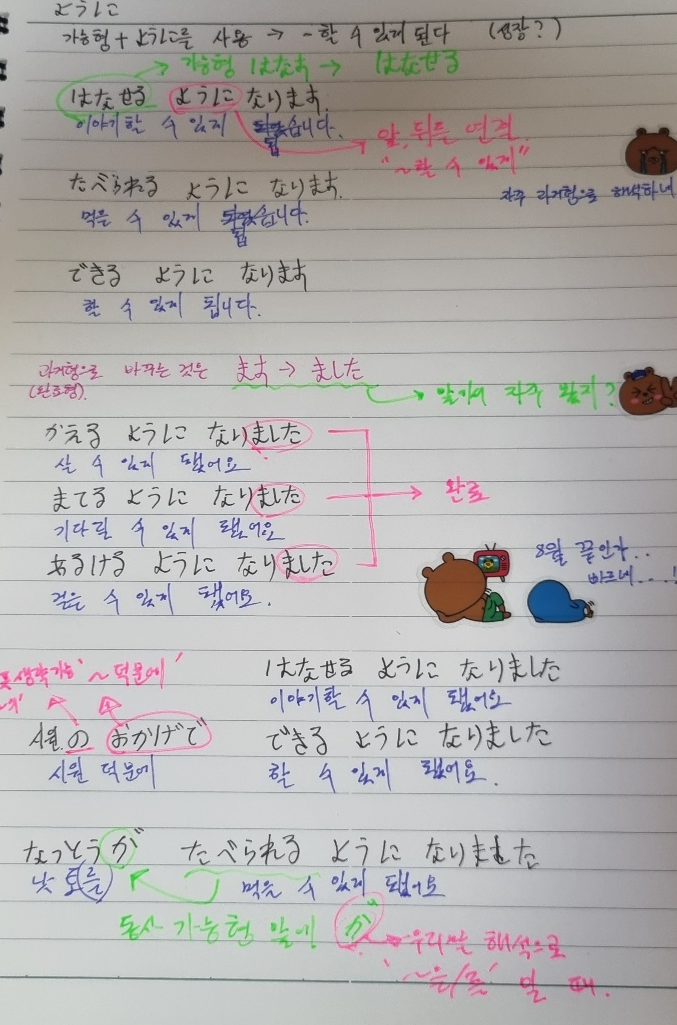 ように
가능형 + ように를 사용 → ~할 수 있게 된다 (성장?)
가능형 はなす → はなせる
はなせる ように なります.
이야기할 수 있게 됩습니다.
앞, 뒤를 연결.
"~할 수 있게"
たべられる ように なります.
자주 과거형으로 해석하네
먹을 수 있게 됩습니다.
できる ように なります
할 수 있게 됩니다.
과거형으로 바꾸는 것은 ます → ました
(완료형).
말이야 자주 봤지?
かえる ように なりました
살 수 있게 됐어요.
まてる ように なりました
완료
기다릴 수 있게 됐어요
あるける ように なりました
걸을 수 있게 됐어요.
8월 끝인가..
빠르네...!
생략가능 '~덕분에'
はなせる ように なりました
이야기할 수 있게 됐어요
시원の おかげで
できる ように なりました
시원 덕분에
할 수 있게 됐어요.
なっとうが たべられる ように なりました
낫토를 먹을 수 있게 됐어요
동사 가능형 앞에 が
우리말 해석으로
'~을/를' 일 때.